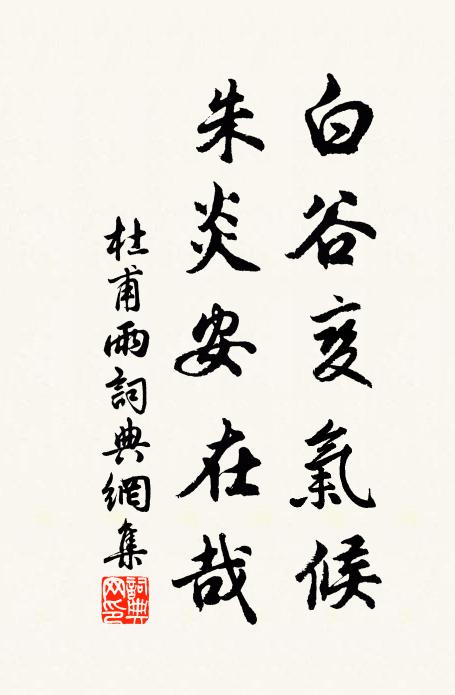 白谷变氣候
朱炎安在哉
杜甫雨詞典網集
詞典網印